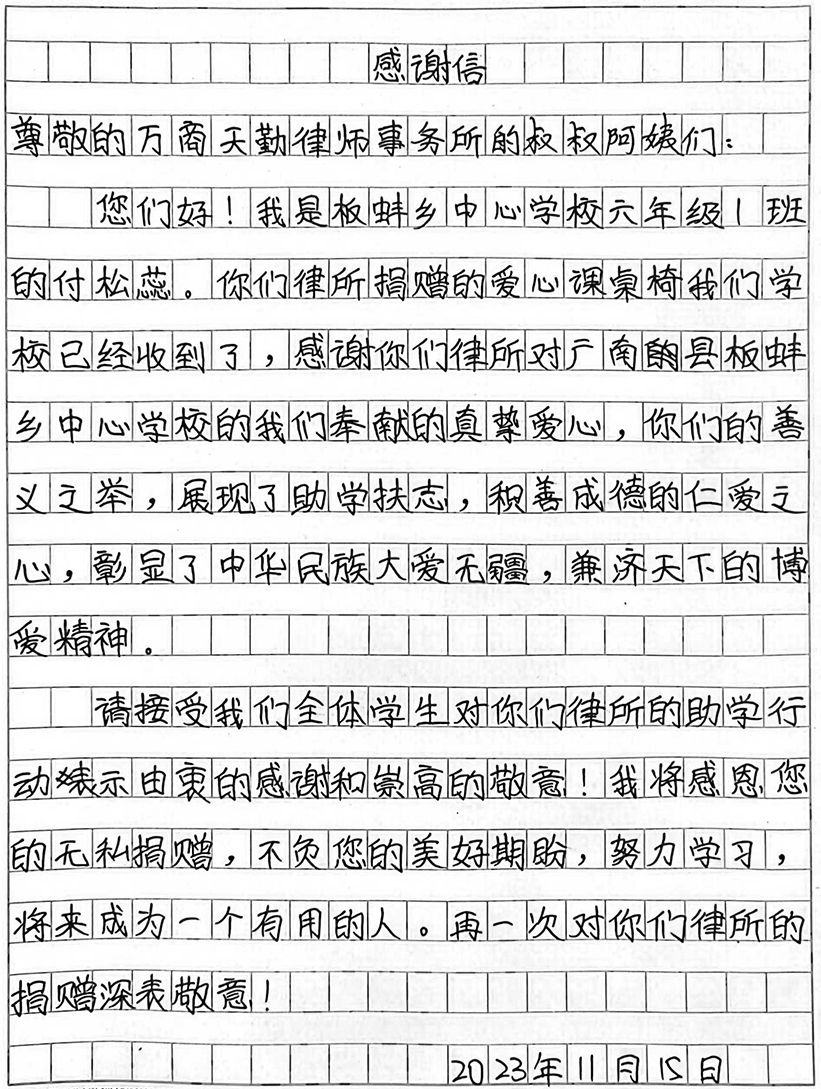 感谢信
尊敬的万商天勤律师事务所的叔叔阿姨们：
您们好！我是板蚌乡中心学校六年级1班
的付松蕊。你们律所捐赠的爱心课桌椅我们学
校已经收到了，感谢你们律所对广南的县板蚌
乡中心学校的我们奉献的真挚爱心，你们的善
义之举，展现了助学扶志，积善成德的仁爱之
心，彰显了中华民族大爱无疆，兼济天下的博
爱精神。
请接受我们全体学生对你们律所的助学行
动表示由衷的感谢和崇高的敬意！我将感恩您
的无私捐赠，不负您的美好期盼，努力学习，
将来成为一个有用的人。再一次对你们律所的
捐赠深表敬意！
2023年11月15日